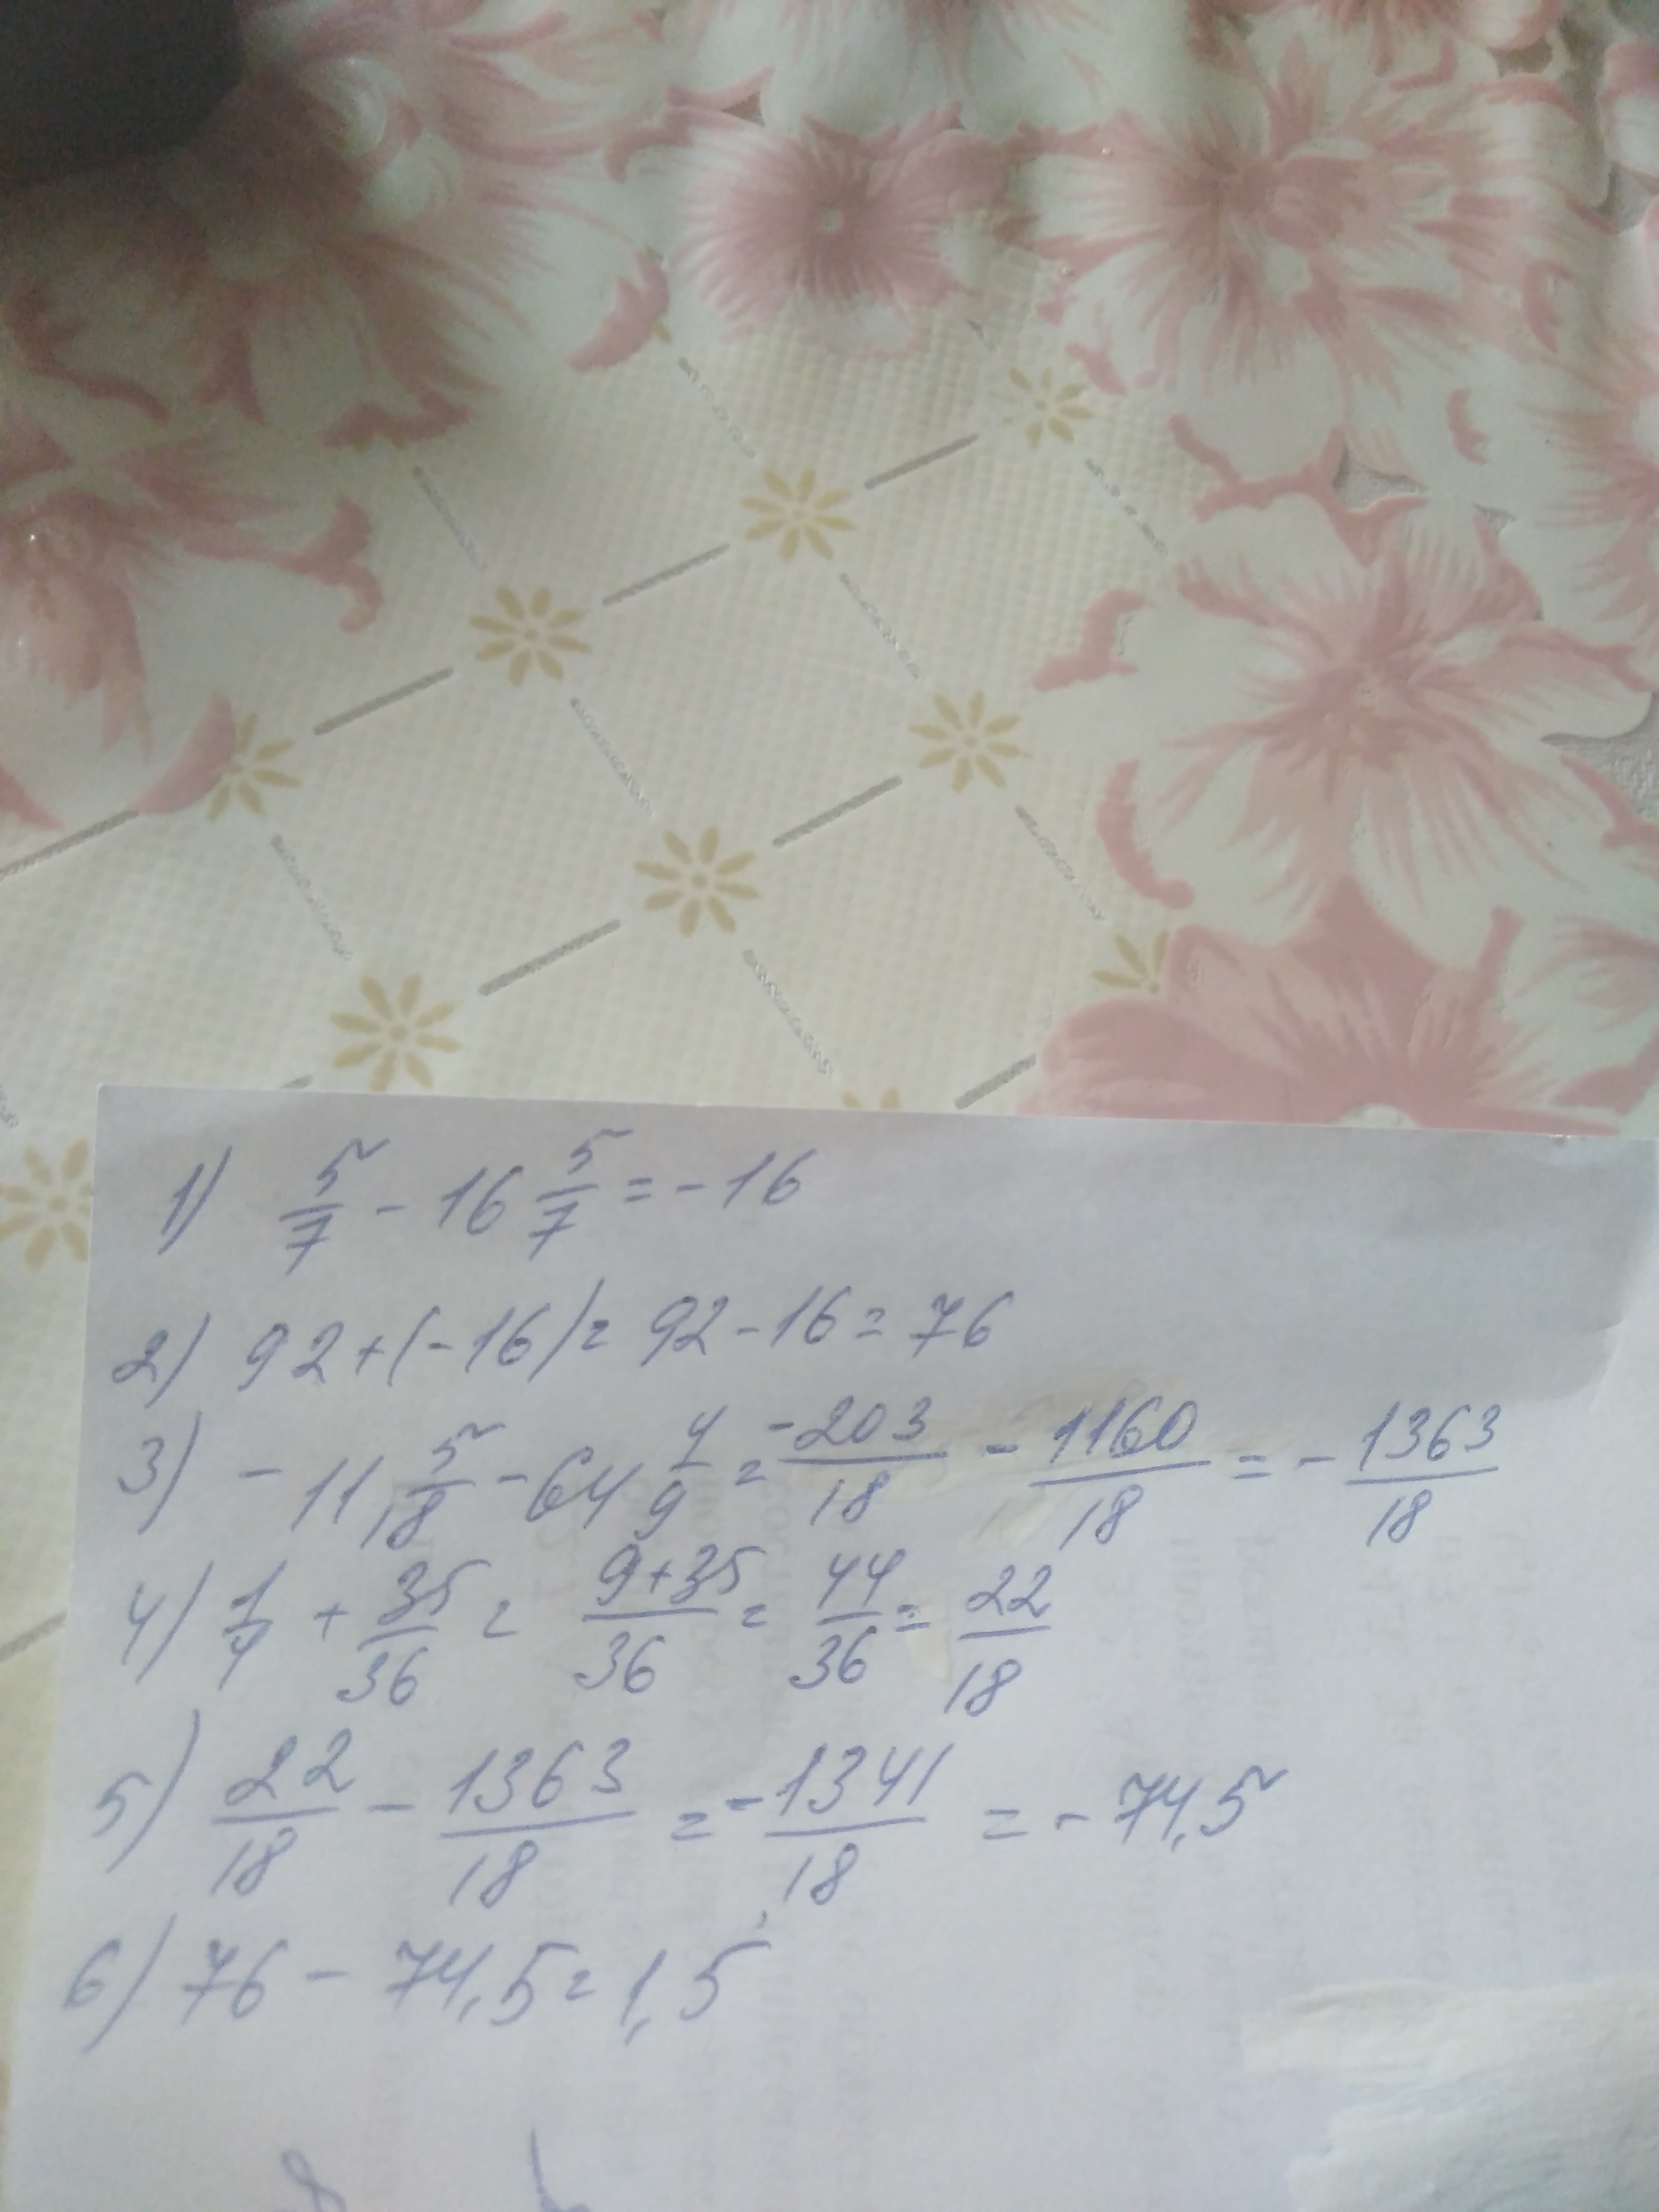 1) 5/7 - 16 5/7 = -16
2) 92 + (-16) = 92 - 16 = 76
3) -11 5/18 - 64 4/9 = -203/18 - 1160/18 = -1363/18
4) 1/4 + 35/36 = 9+35/36 = 44/36 = 22/18
5) 22/18 - 1363/18 = -1341/18 = -74,5
6) 76 - 74,5 = 1,5